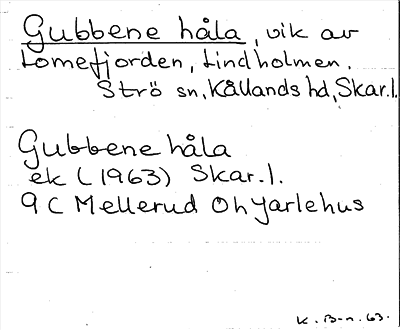 Gubbene håla, vik av
Lomefjorden, Lindholmen.
Strö sn, Kållands hd, Skar.l.
Gubbene håla
ek (1963) Skar.l.
9C Mellerud Oh Yarlehus
K. B-n. 63.